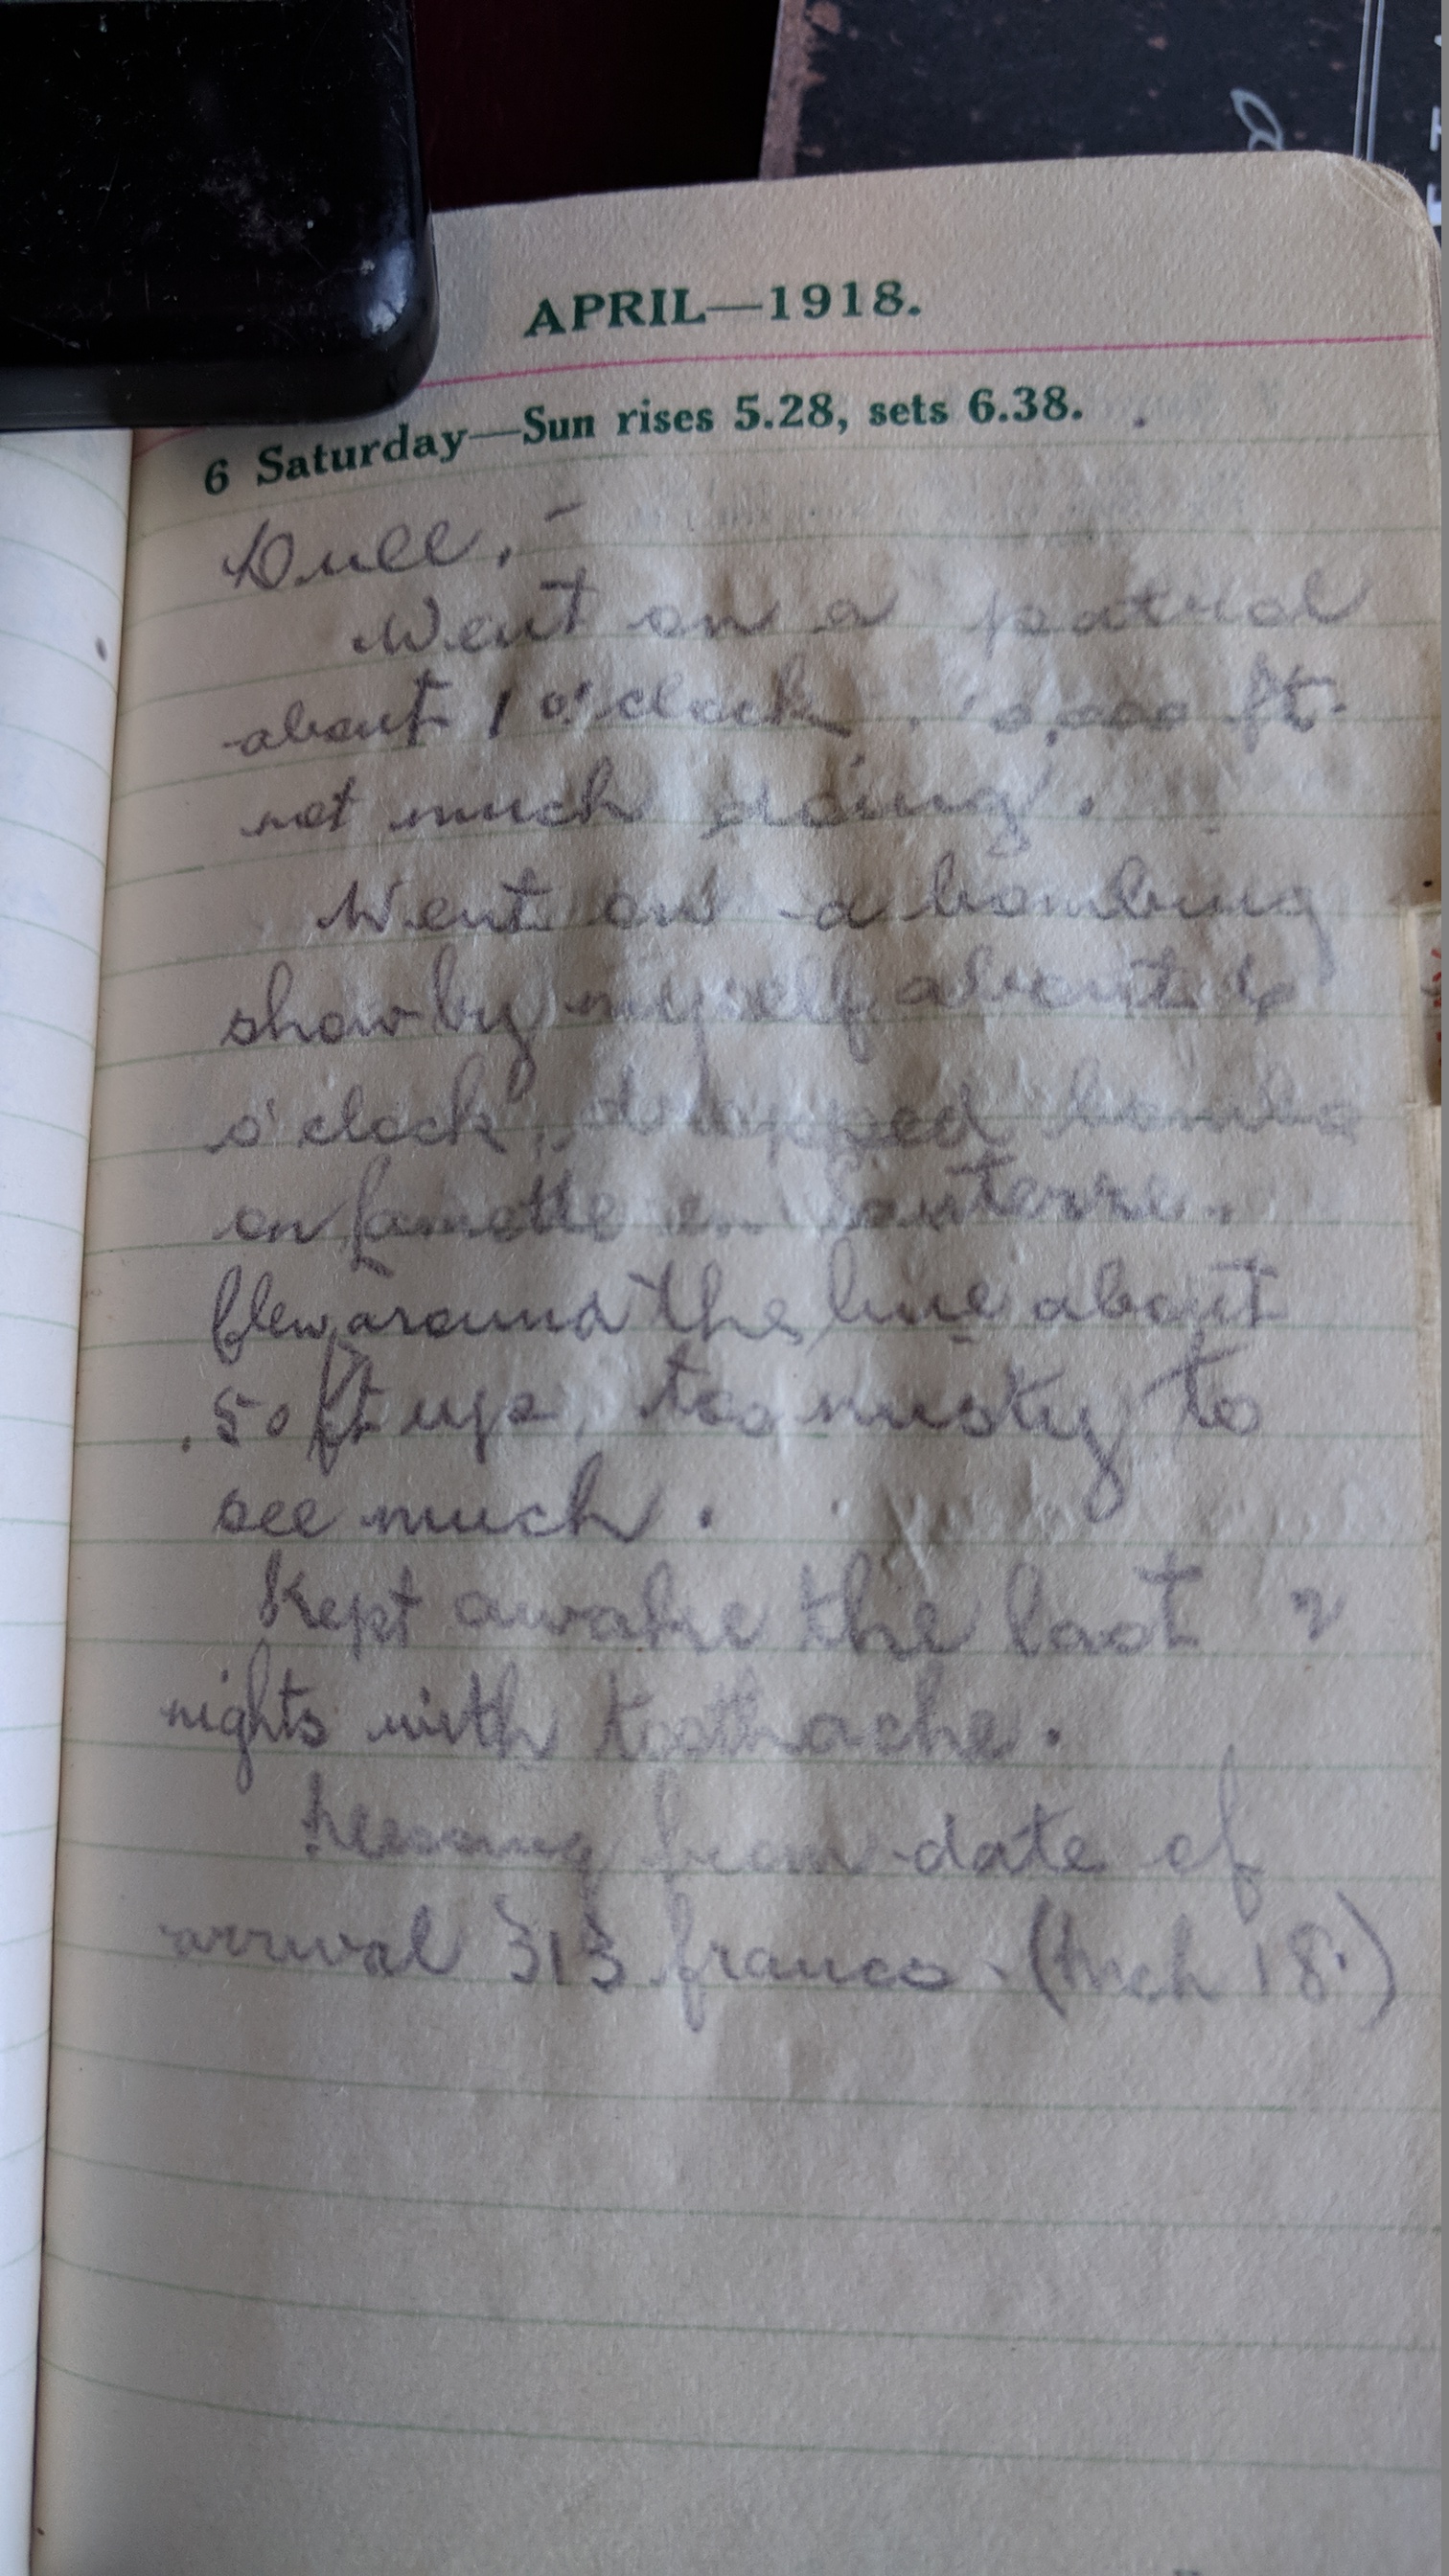 APRIL—1918.
6 Saturday—Sun rises 5.28, sets 6.38.
Dull. -
Went on a patrol
about 1 o'clock. ft.
not much doing.
Went on a bombing
show by myself about 6
o'clock, dropped bombs
on Lamotte en Santerre.
flew around the line about
50 ft up, too misty to
see much.
Kept awake the last 2
nights with toothache.
Messing from date of
arrival 313 francs. (Mch 18.)